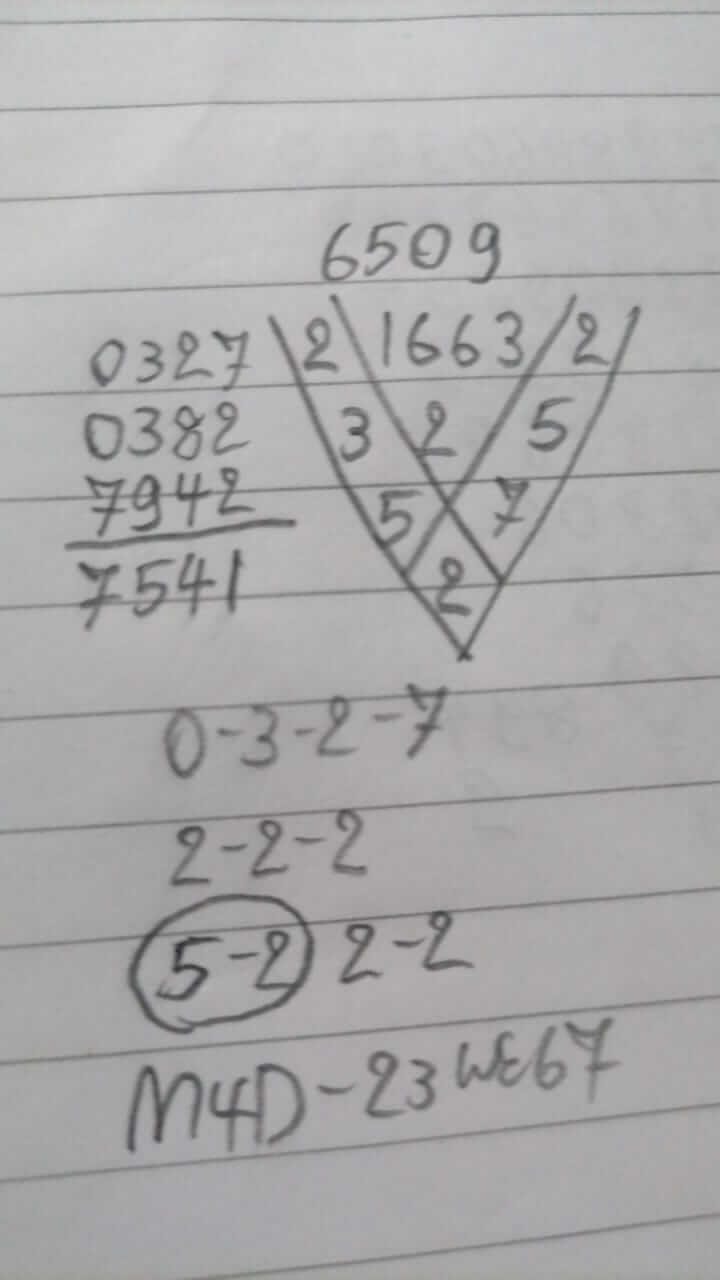 6509
0327 2 1663 2
0382 3 2 5
7942 5 7
7541 2
0-3-2-7
2-2-2
5-2 2-2
M4D-23 WE67